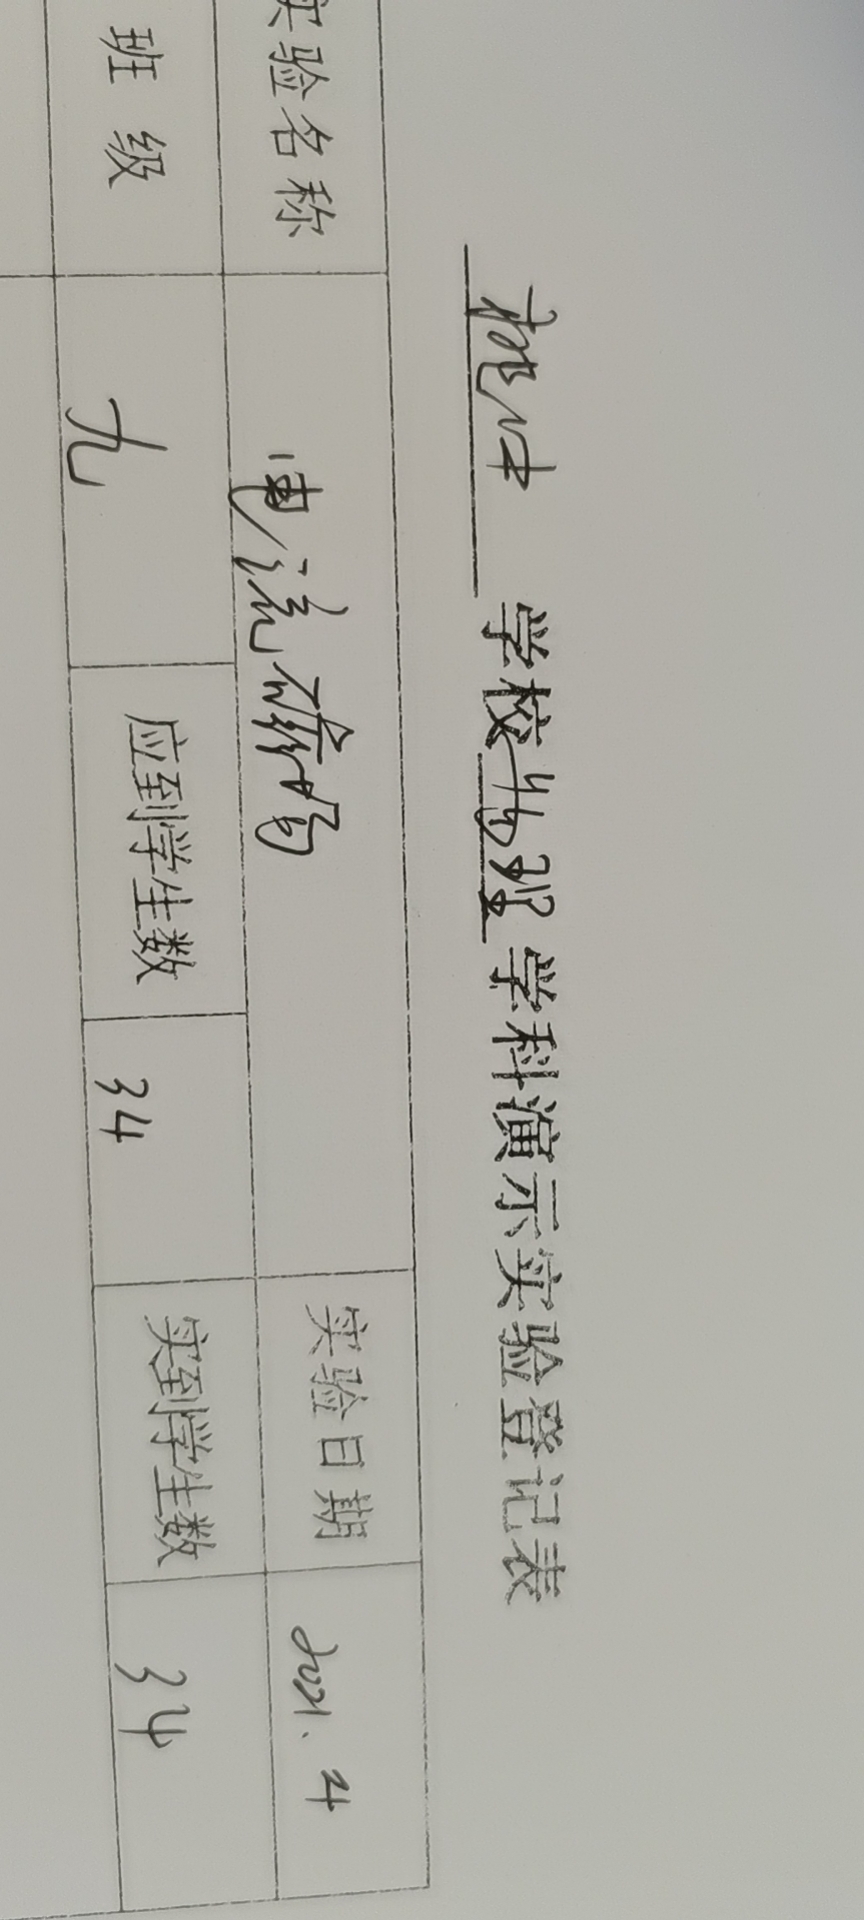 桃中 学校 物理 学科演示实验登记表
实验名称 电流磁场 实验日期 2021.4
班级 九 应到学生数 34 实到学生数 34